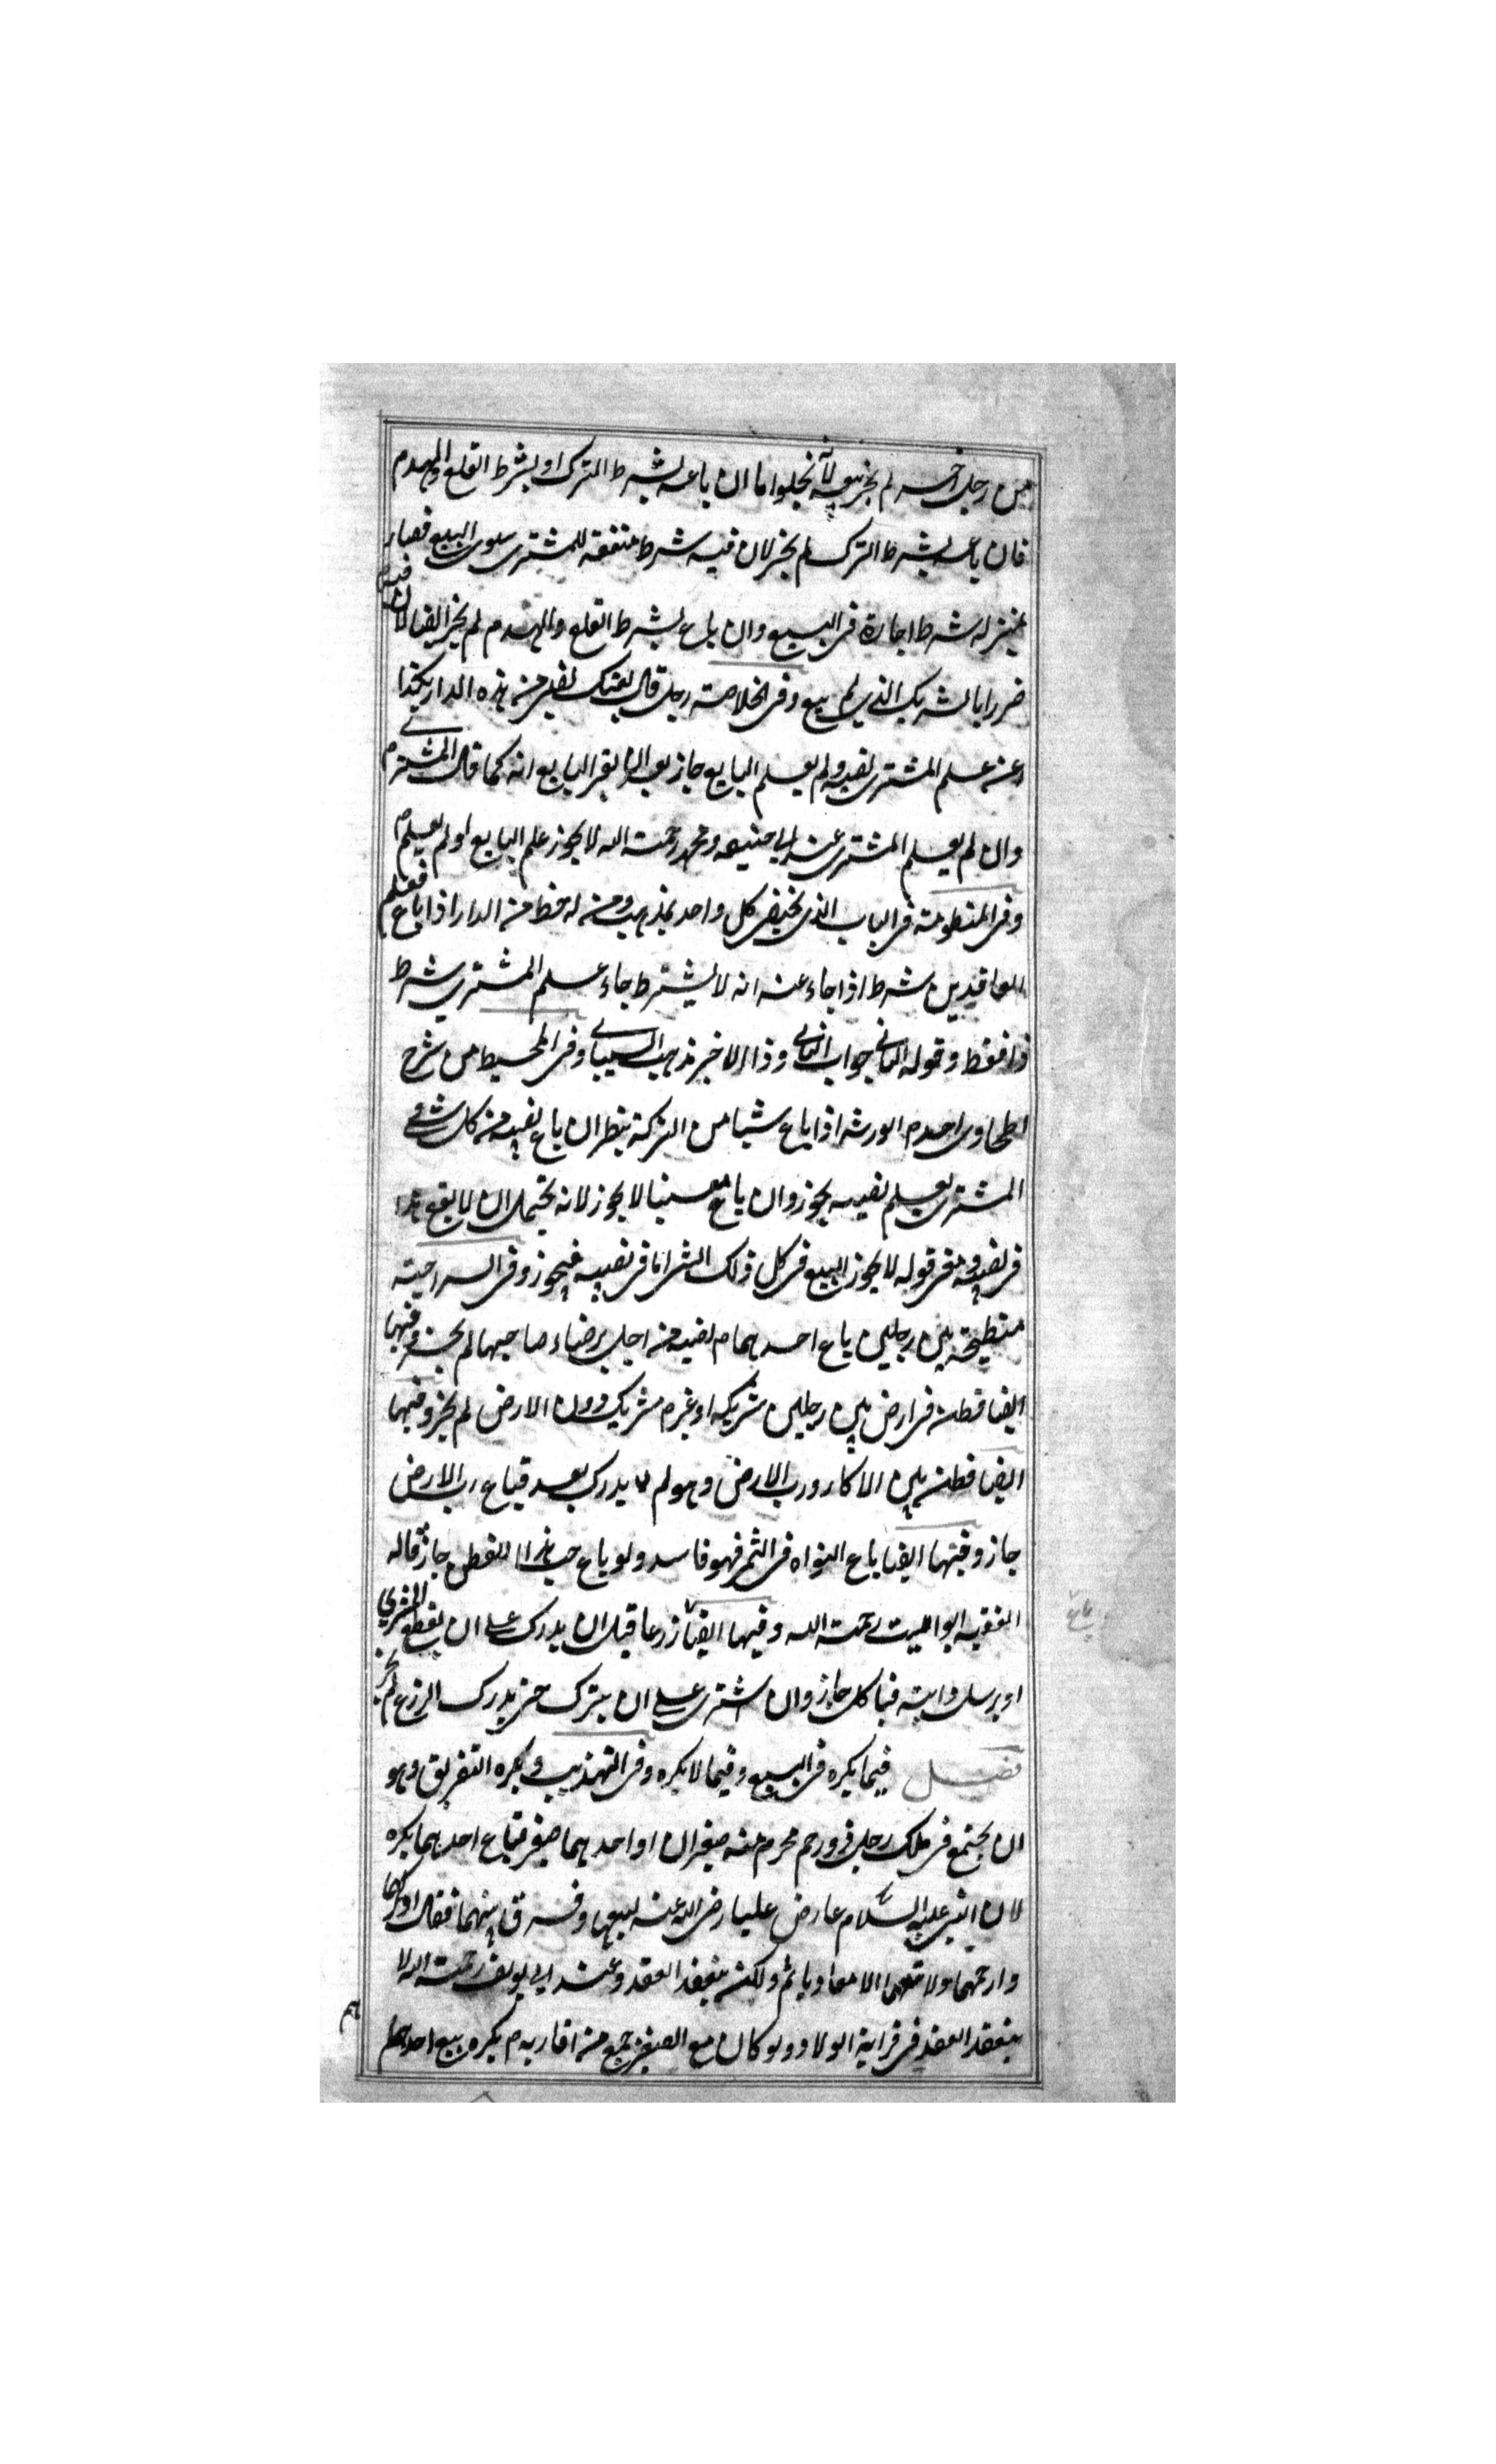 من رجل اخر لم يجز بيعه لانه لا يخلوا اما ان باعه بشرط الترك او بشرط القلع والهدم
فان باعه بشرط الترك لم يجز لان فيه شرط منفعة للمشترى سوى البيع فصار
بمنزله شرط اجارة فى البيع وان باع بشرط القلع والهدم لم يجز ايضا لان فيه
ضررا بالشريك الذى لم يبع وفى الخلاصة رجل قال بعتك نصيبى من هذه الدار بكذا
علم المشترى نصيبه ولم يعلم البايع جاز بعد ان يقر البايع انه كما قال المشترى
وان لم يعلم المشترى عند ابى حنيفه ومحمد رحمة الله لا يجوز علم البايع او لم يعلم
وفى المنظومة فى الباب الذى يختص كل واحد بمذهب ومن له حظ من الدار اذا باع فعلم
العاقدين شرط اذا جاء عنه انه لا يشترط جاء علم المشترى شرط
ذا فقط وقوله الثانى جواب الثانى وذا الاخير مذهب الشيبانى وفى المحيط من شرح
الطحاوى احدم الورثه اذا باع شيا من التركة ينظر ان باع نصيبه من كل شى و
المشترى يعلم نصيبه يجوز وان باع معينا لا يجوز لانه يحتمل ان لا يقع هذا
فى نصيبه ومعنى قوله لا يجوز البيع فى كل ذلك الشى اما فى نصيبه فيجوز وفى السراجية
مبطخة بين رجلين باع احدهما نصيبه من اجل برضاء صاحبها لم يجز وفيها
ايضا قطن فى ارض بين رجلين شريكه او غيره شريك دون الارض لم يجز وفيها
ايضا قطن بين الاكار ورب الارض وهو لم يدرك بعد فباع رب الارض
جاز وفيها ايضا باع النواه فى التمر فهو فاسد ولو باع حب هذا القطن جاز قاله
الفقيه ابو الليث رحمة الله وفيها ايضا زرعا قبل ان يدرك على ان يقطعه المشترى
او يرسل دابته فياكل جاز وان اشترى على ان يترك حتى يدرك الزرع لم يجز
فصل فيما يكره فى البيع وفيما لا يكره وفى التهذيب ويكره التفريق وهو
ان يجتمع فى ملك رجل ذو رحم محرم منه صغيران او احدهما صغير فباع احدهما يكره
لان النبى عليه السلام عارض عليا رضى الله عنه لبيعها وفرق بينهما فقال ادركهما
وارحمهما ولا تبعهما الا معا ولكن ينعقد العقد وعند ابى يوسف رحمة الله لا
ينعقد العقد فى قرابة الولاد ولو كان مع الصغير جمع من اقاربه م يكره بيع احدهما
باع